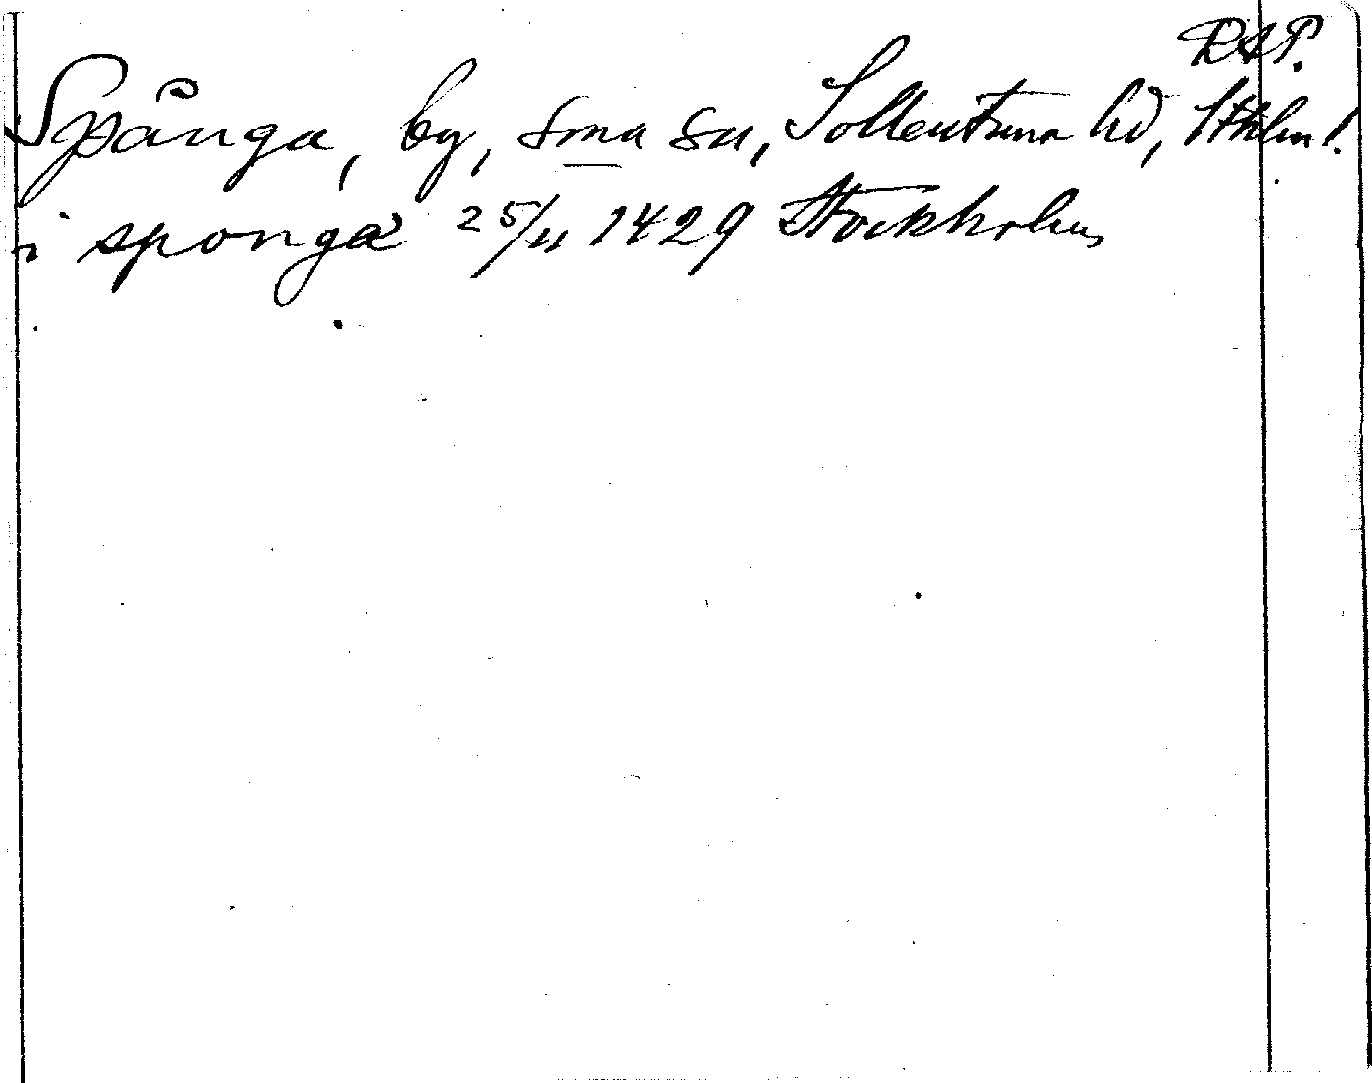 RAP.
Spånga, by, sma sn, Sollentuna hd, Sthlm l.
i sponga 25/11 1429 Stockholm